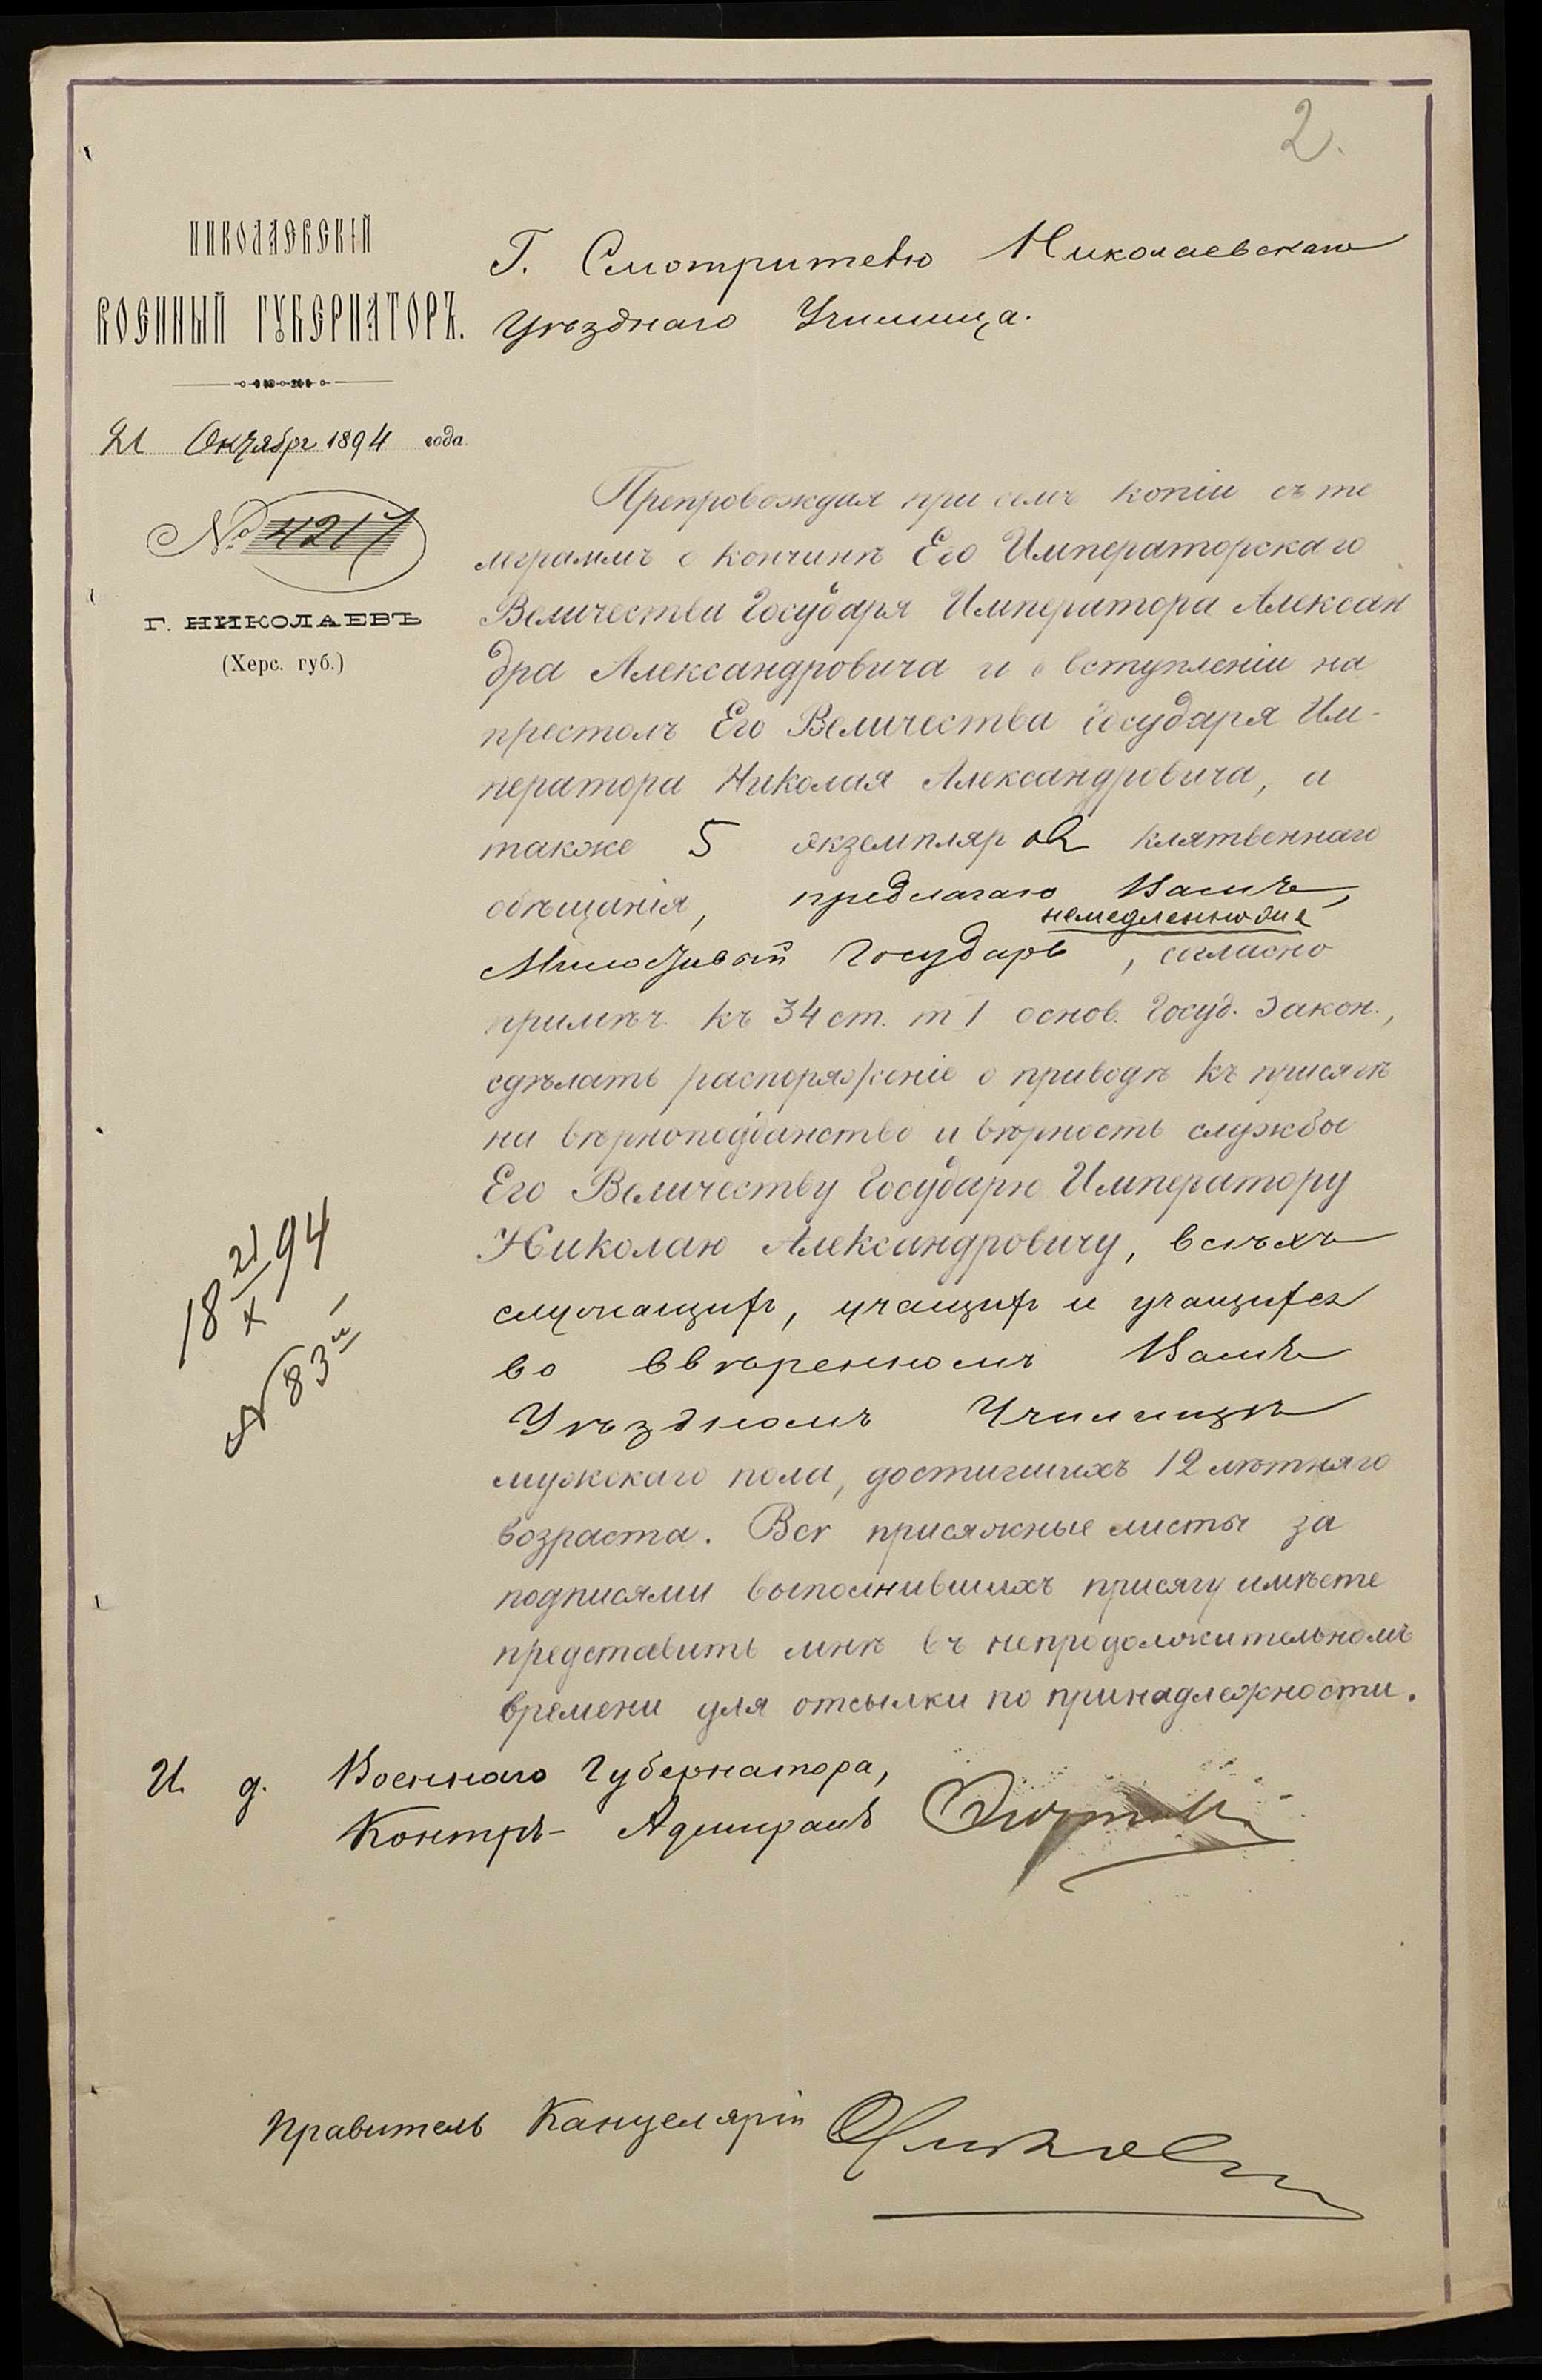 2.
НИКОЛАЕВСКІЙ
ВОЕННЫЙ ГУБЕРНАТОРЪ.
21 Октября 1894 года
№ 4217
Г. НИКОЛАЕВЪ
(Херс. губ.)
Г. Смотрителю Николаевскаго
Уѣзднаго Училища.
Препровождая при семъ копіи съ те
леграммъ о кончинѣ Его Императорскаго
Величества Государя Императора Алексан
дра Александровича и о вступленіи на
престолъ Его Величества Государя Им-
ператора Николая Александровича, а
также 5 экземпляровъ клятвеннаго
обѣщанія, предлагаю Вамъ,
немедленно
Милостивый Государь, согласно
примѣч. къ 34 ст. т 1 основ. Госуд. Закон.,
сдѣлать распоряженіе о приводѣ къ присягѣ
на вѣрноподданство и вѣрность службы
Его Величеству Государю Императору
Николаю Александровичу, всѣхъ
служащихъ, учащихъ и учащихся
во ввѣренномъ Вамъ
Уѣздномъ Училищѣ
мужскаго пола, достигшихъ 12 лѣтняго
возраста. Всѣ присяжные листы за
подписями выполнившихъ присягу имѣете
представить мнѣ въ непродолжительномъ
времени для отсылки по принадлежности.
18 21/X 94
№ 83
И. д. Военнаго Губернатора,
Контръ-Адмиралъ
Правитель Канцеляріи